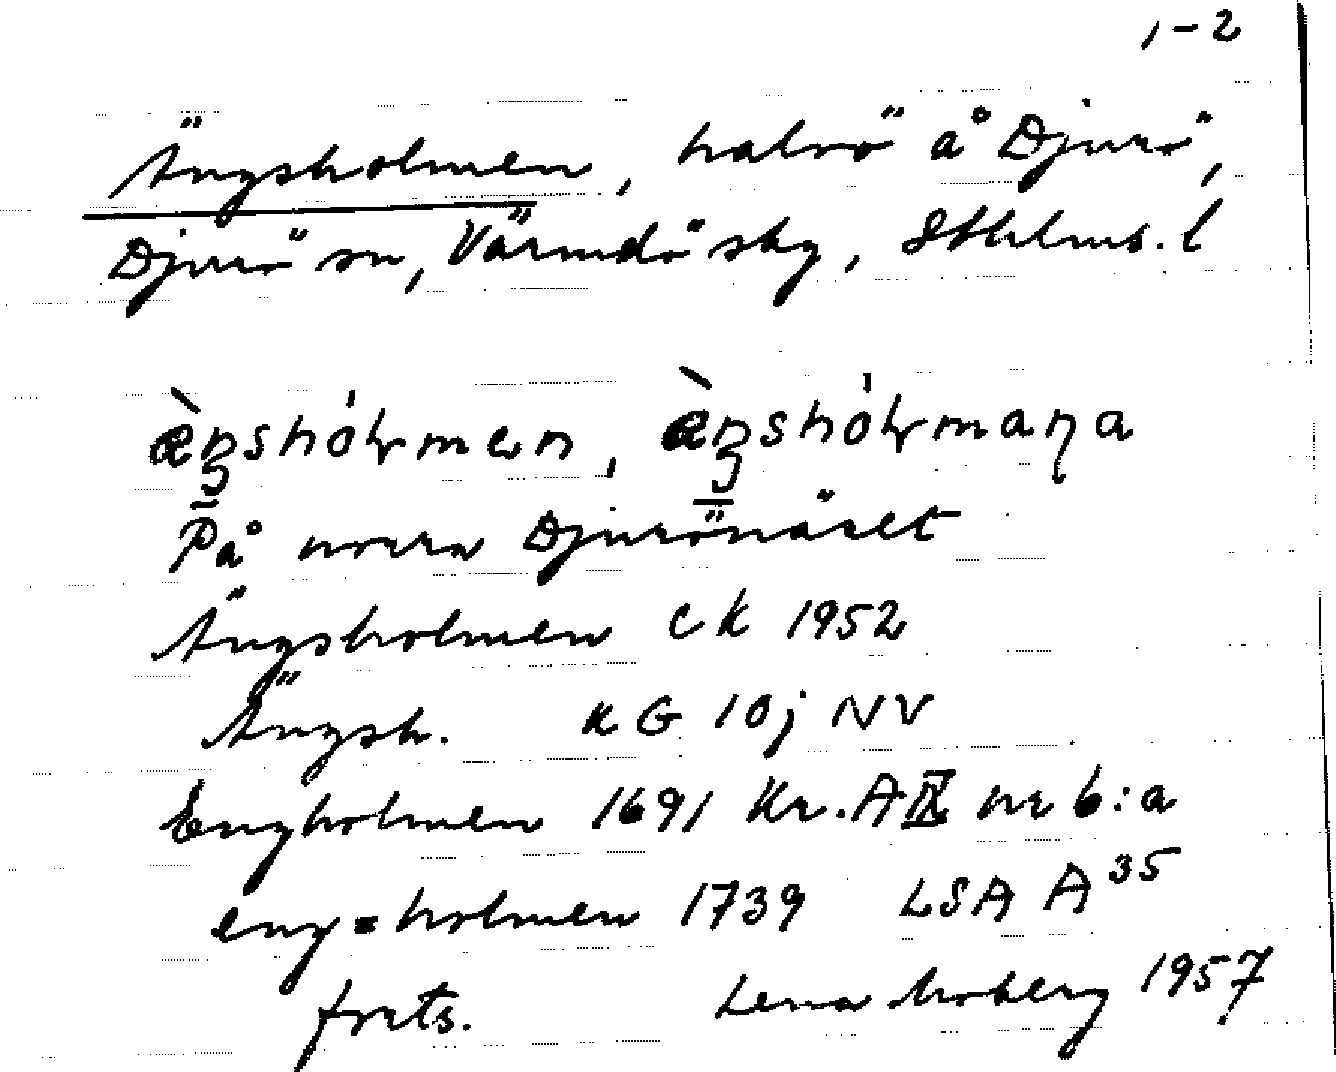 1-2
Ängsholmen, halvö å Djurö,
Djurö sn, Värmdö skg, Sthlms. l
På norra Djurönäset
Ängsholmen EK 1952
Ängsh. KG 10j NV
Engholmen 1691 Kr. A IX nr 6:a
eng=holmen 1739 LSA A 35
forts. Lena Moberg 1957